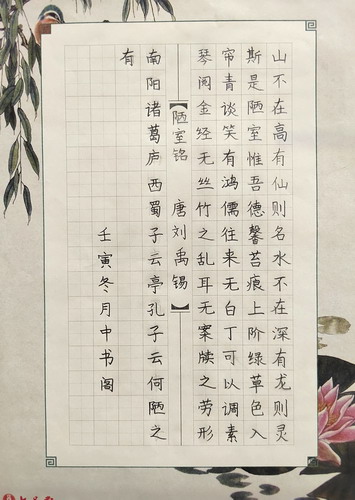 山不在高有仙则名水不在深有龙则灵
斯是陋室惟吾德馨苔痕上阶绿草色入
帘青谈笑有鸿儒往来无白丁可以调素
琴阅金经无丝竹之乱耳无案牍之劳形
【陋室铭 唐刘禹锡】
南阳诸葛庐西蜀子云亭孔子云何陋之
有
壬寅冬月中书阁